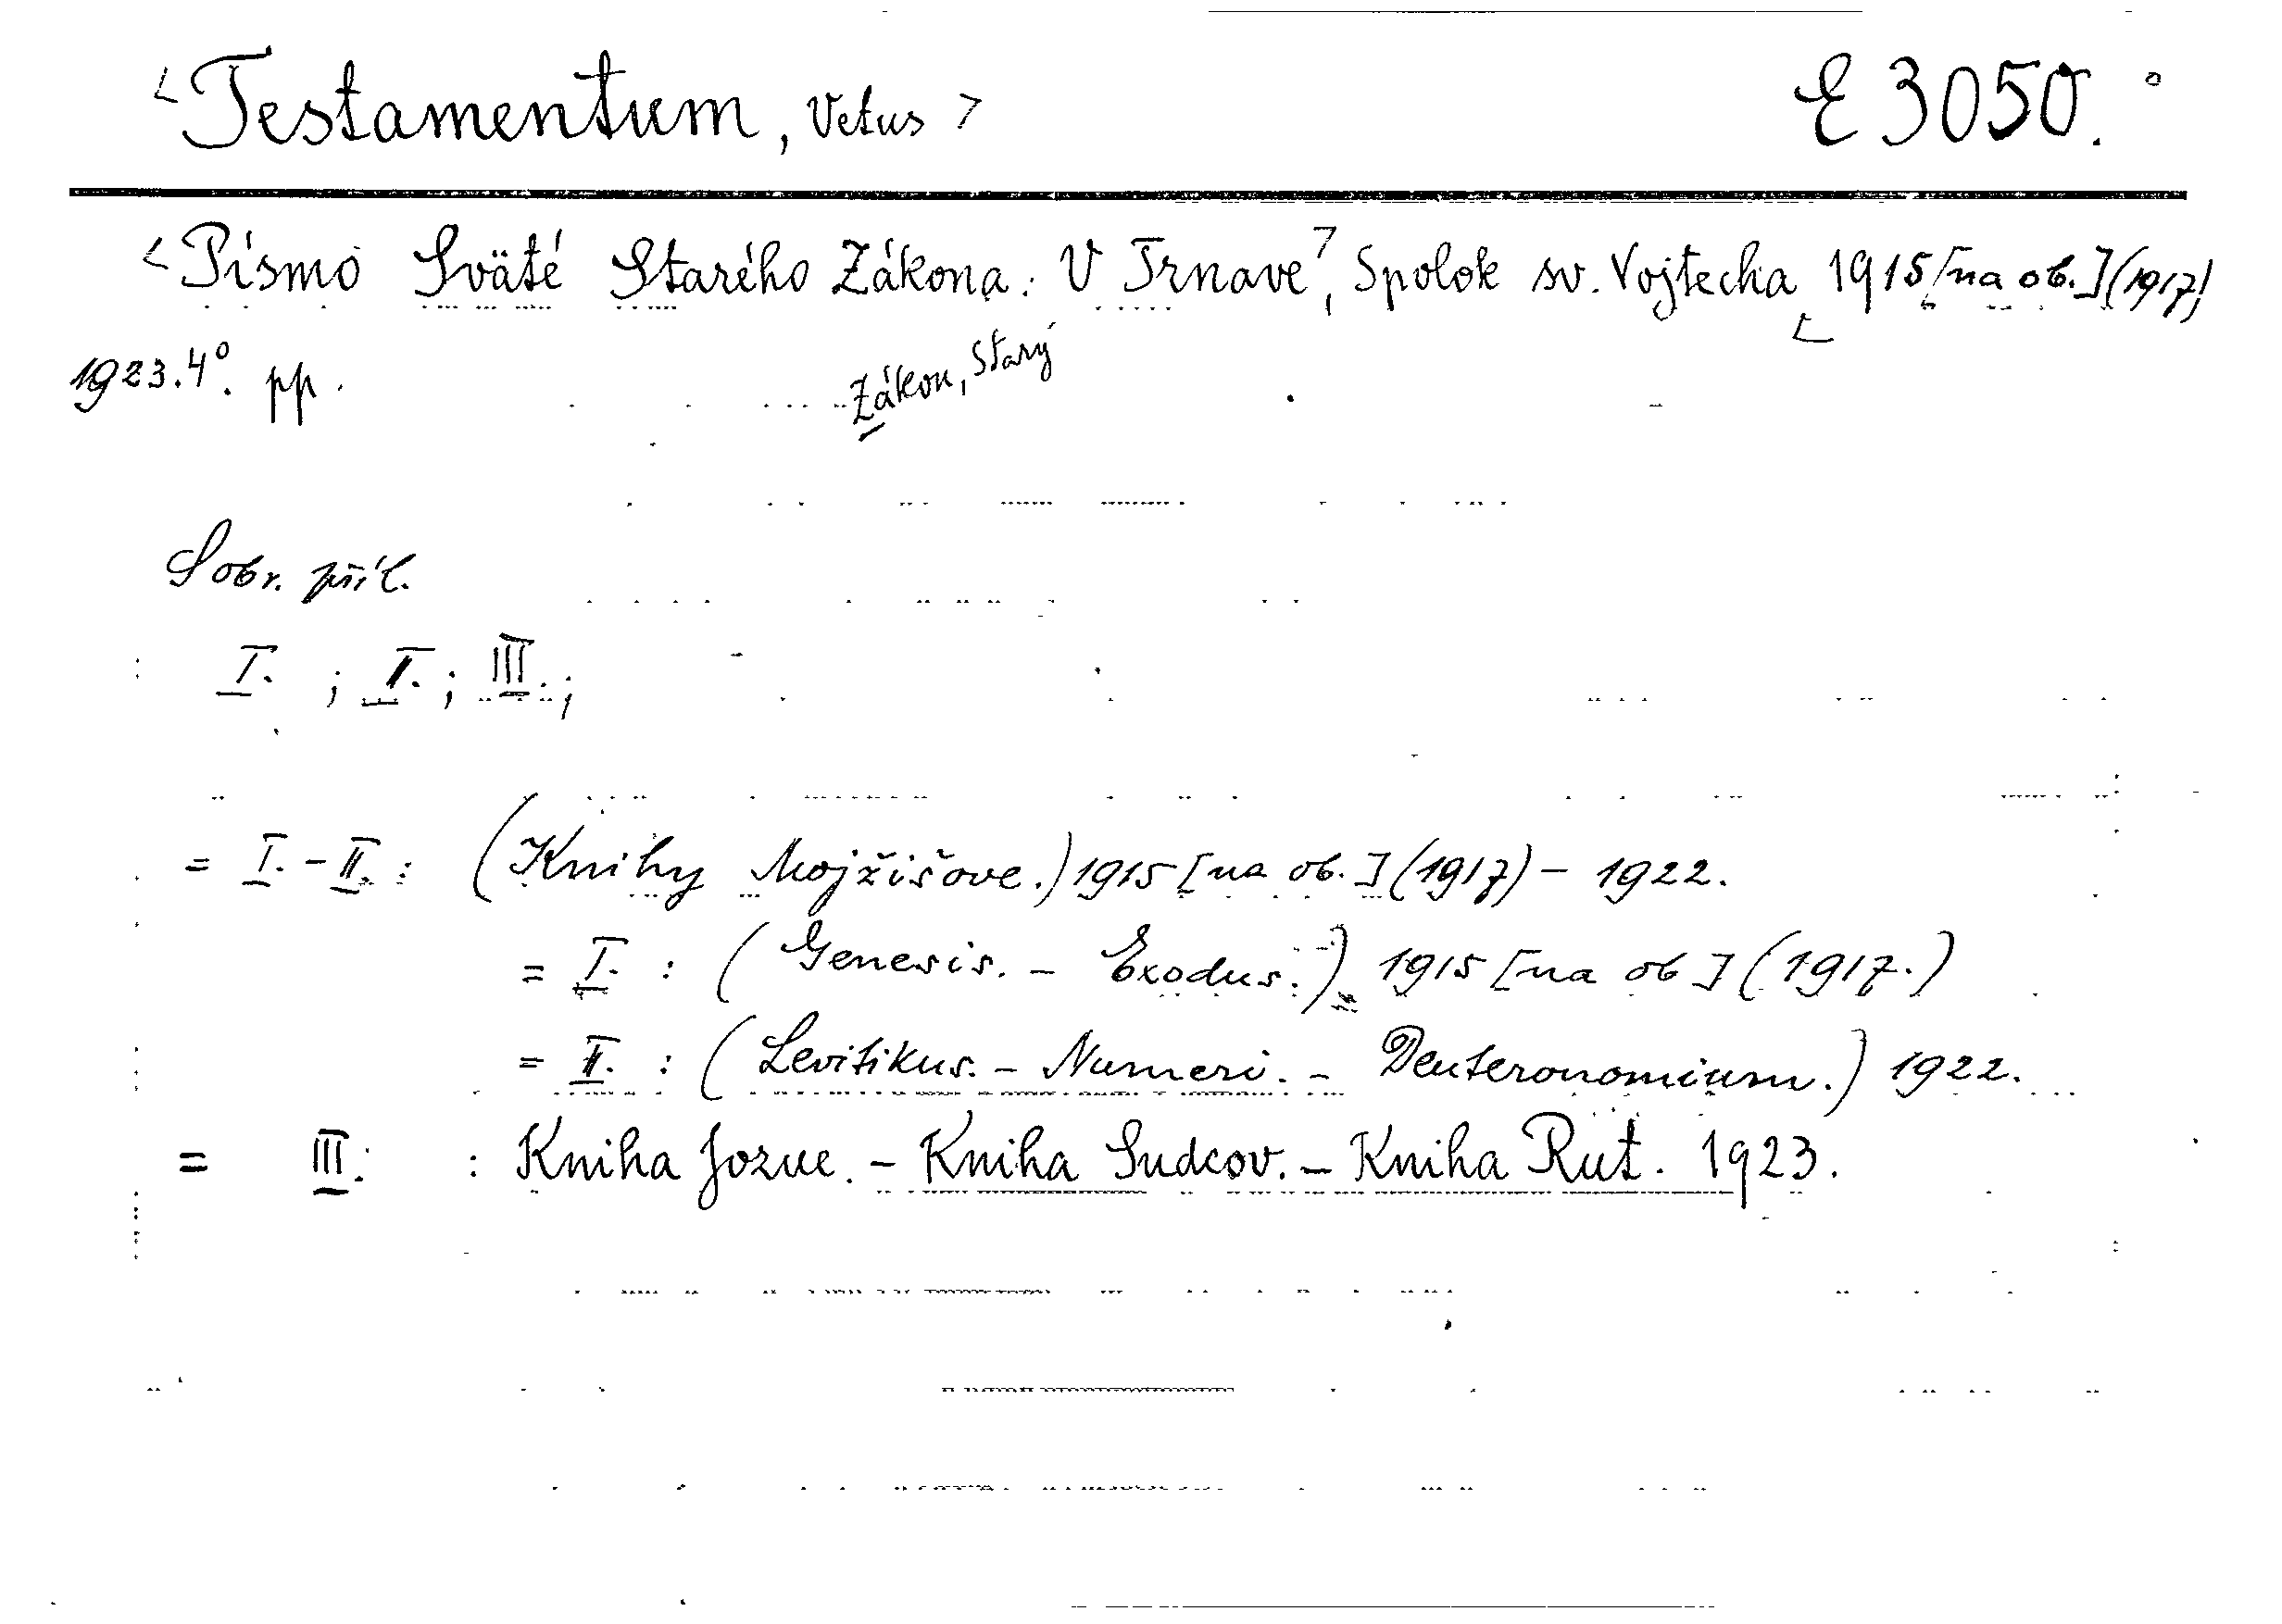 <Testamentum, Vetus> E 3050.
<Písmo Sväté Starého Zákona. V Trnave>, Spolok sv. Vojtecha 1915 [na ob.] (1917)
1923. 4°. pp.
Zákon, Starý
S obr. příl.
I. ; II. ; III. ;
= I. - II. : (Knihy Mojžišove.) 1915 [na ob.] (1917) - 1922.
= I. : (Genesis. - Exodus.) 1915 [na ob] (1917.)
= II. : (Levitikus. - Numeri. - Deuteronomium.) 1922.
= III. : Kniha Jozue. - Kniha Sudcov. - Kniha Rut. 1923.